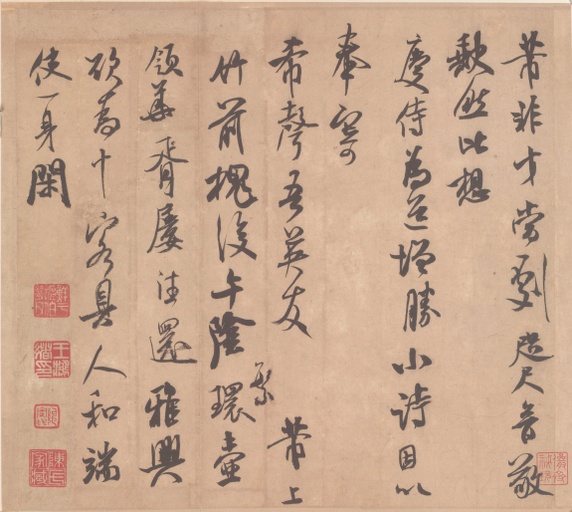 芾非才當劇咫尺音敬
缺然此想
慶侍為道增勝小詩因以
奉寄
希聲吾英友 芾上
竹前槐後午陰繁環壺
領華胥屢往還雅興
欲為十客具人和端
使一身閑